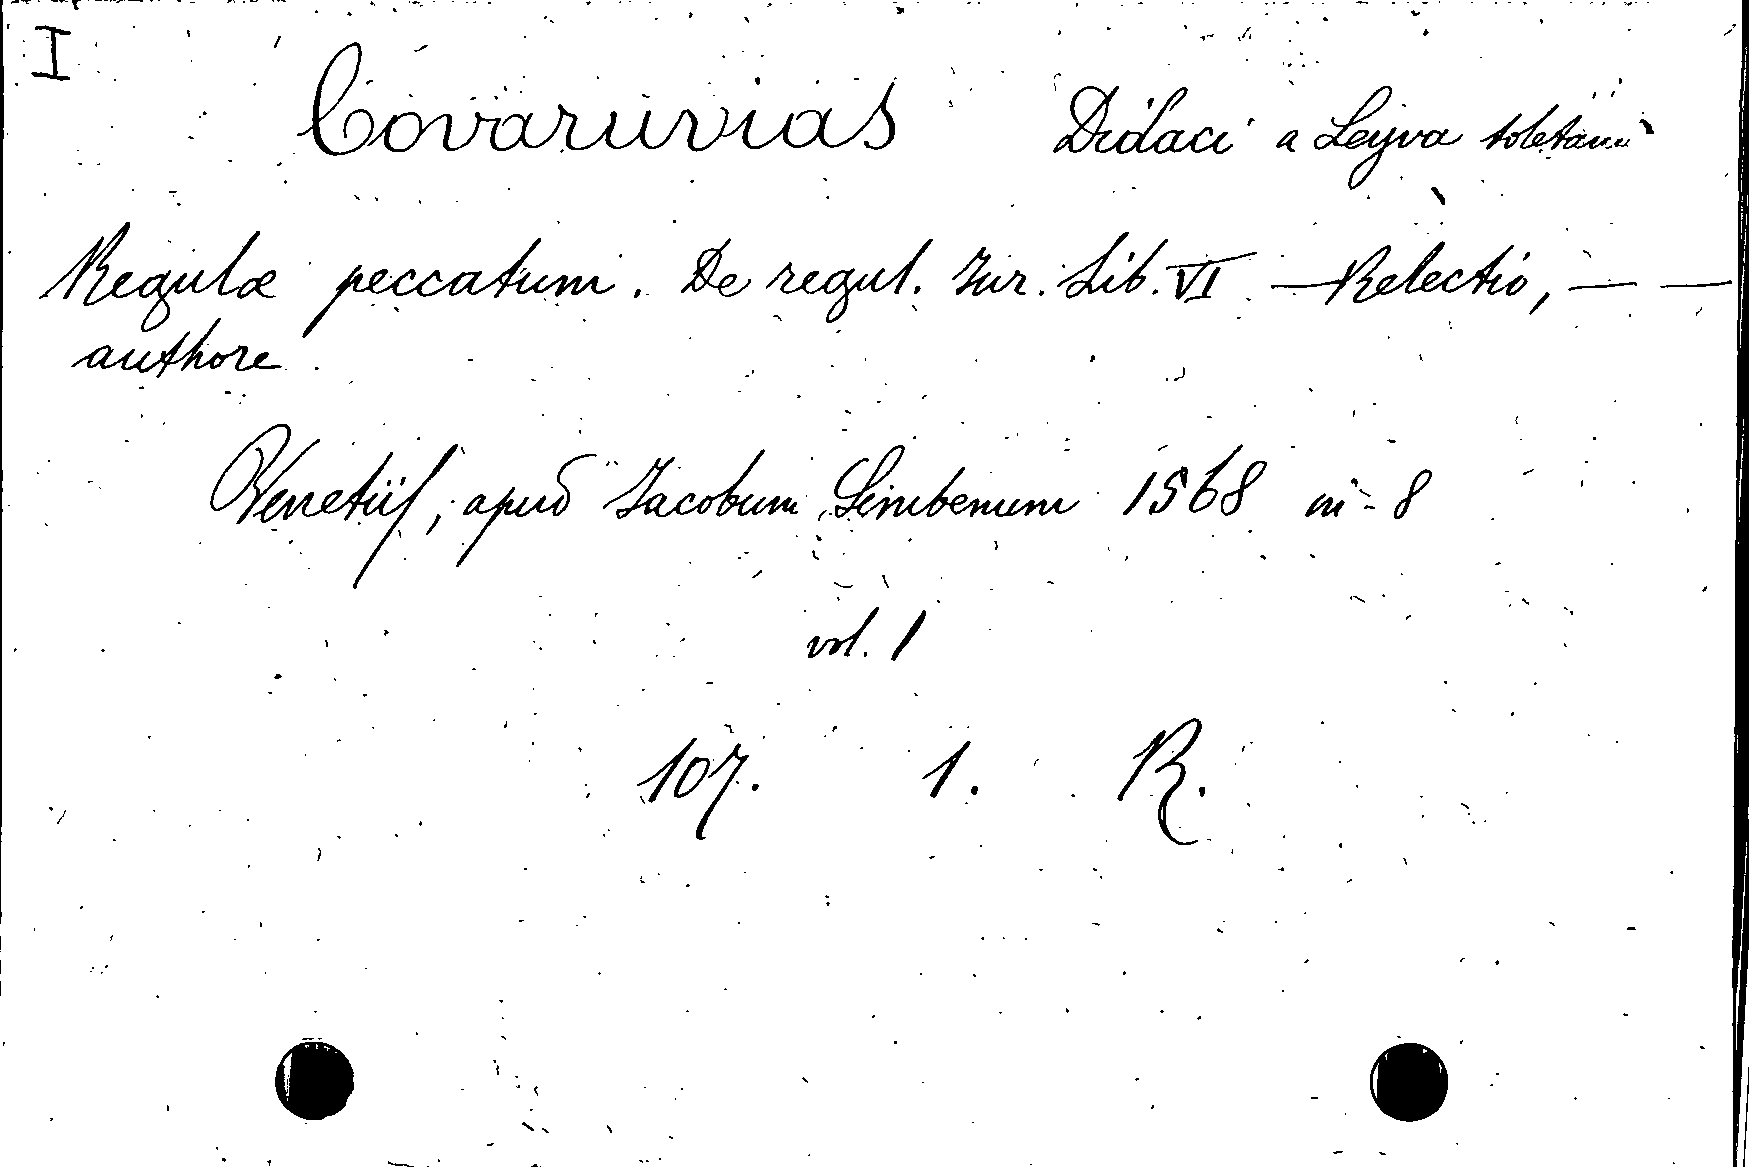 I
Covaruvias Didaci a Leyva toletani
Regulæ peccatum. De regul. Jur. Lib. VI — Relectio, — —
authore
Venetiis, apud Jacobum Simbenum 1568 in-8
vol. 1
107. 1. R.